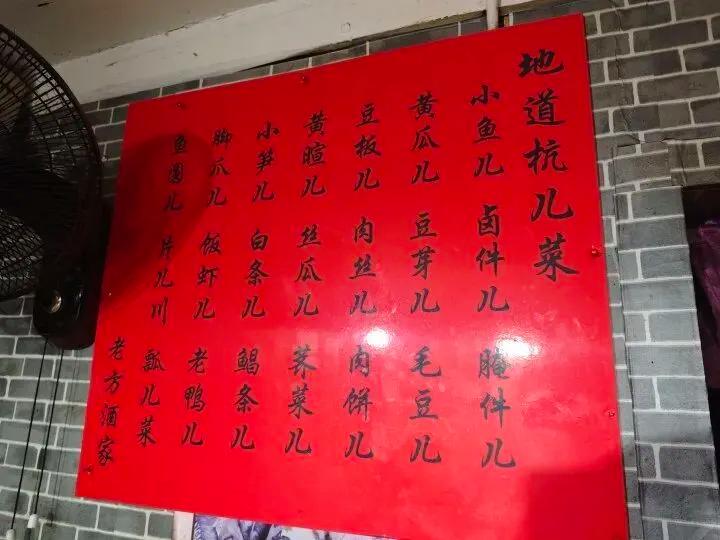 地道杭儿菜
小鱼儿 卤件儿 腌件儿
黄瓜儿 豆芽儿 毛豆儿
豆板儿 肉丝儿 肉饼儿
黄暄儿 丝瓜儿 荠菜儿
小笋儿 白条儿 鲳条儿
脚爪儿 饭虾儿 老鸭儿
鱼圆儿 片儿川 瓢儿菜
老方酒家